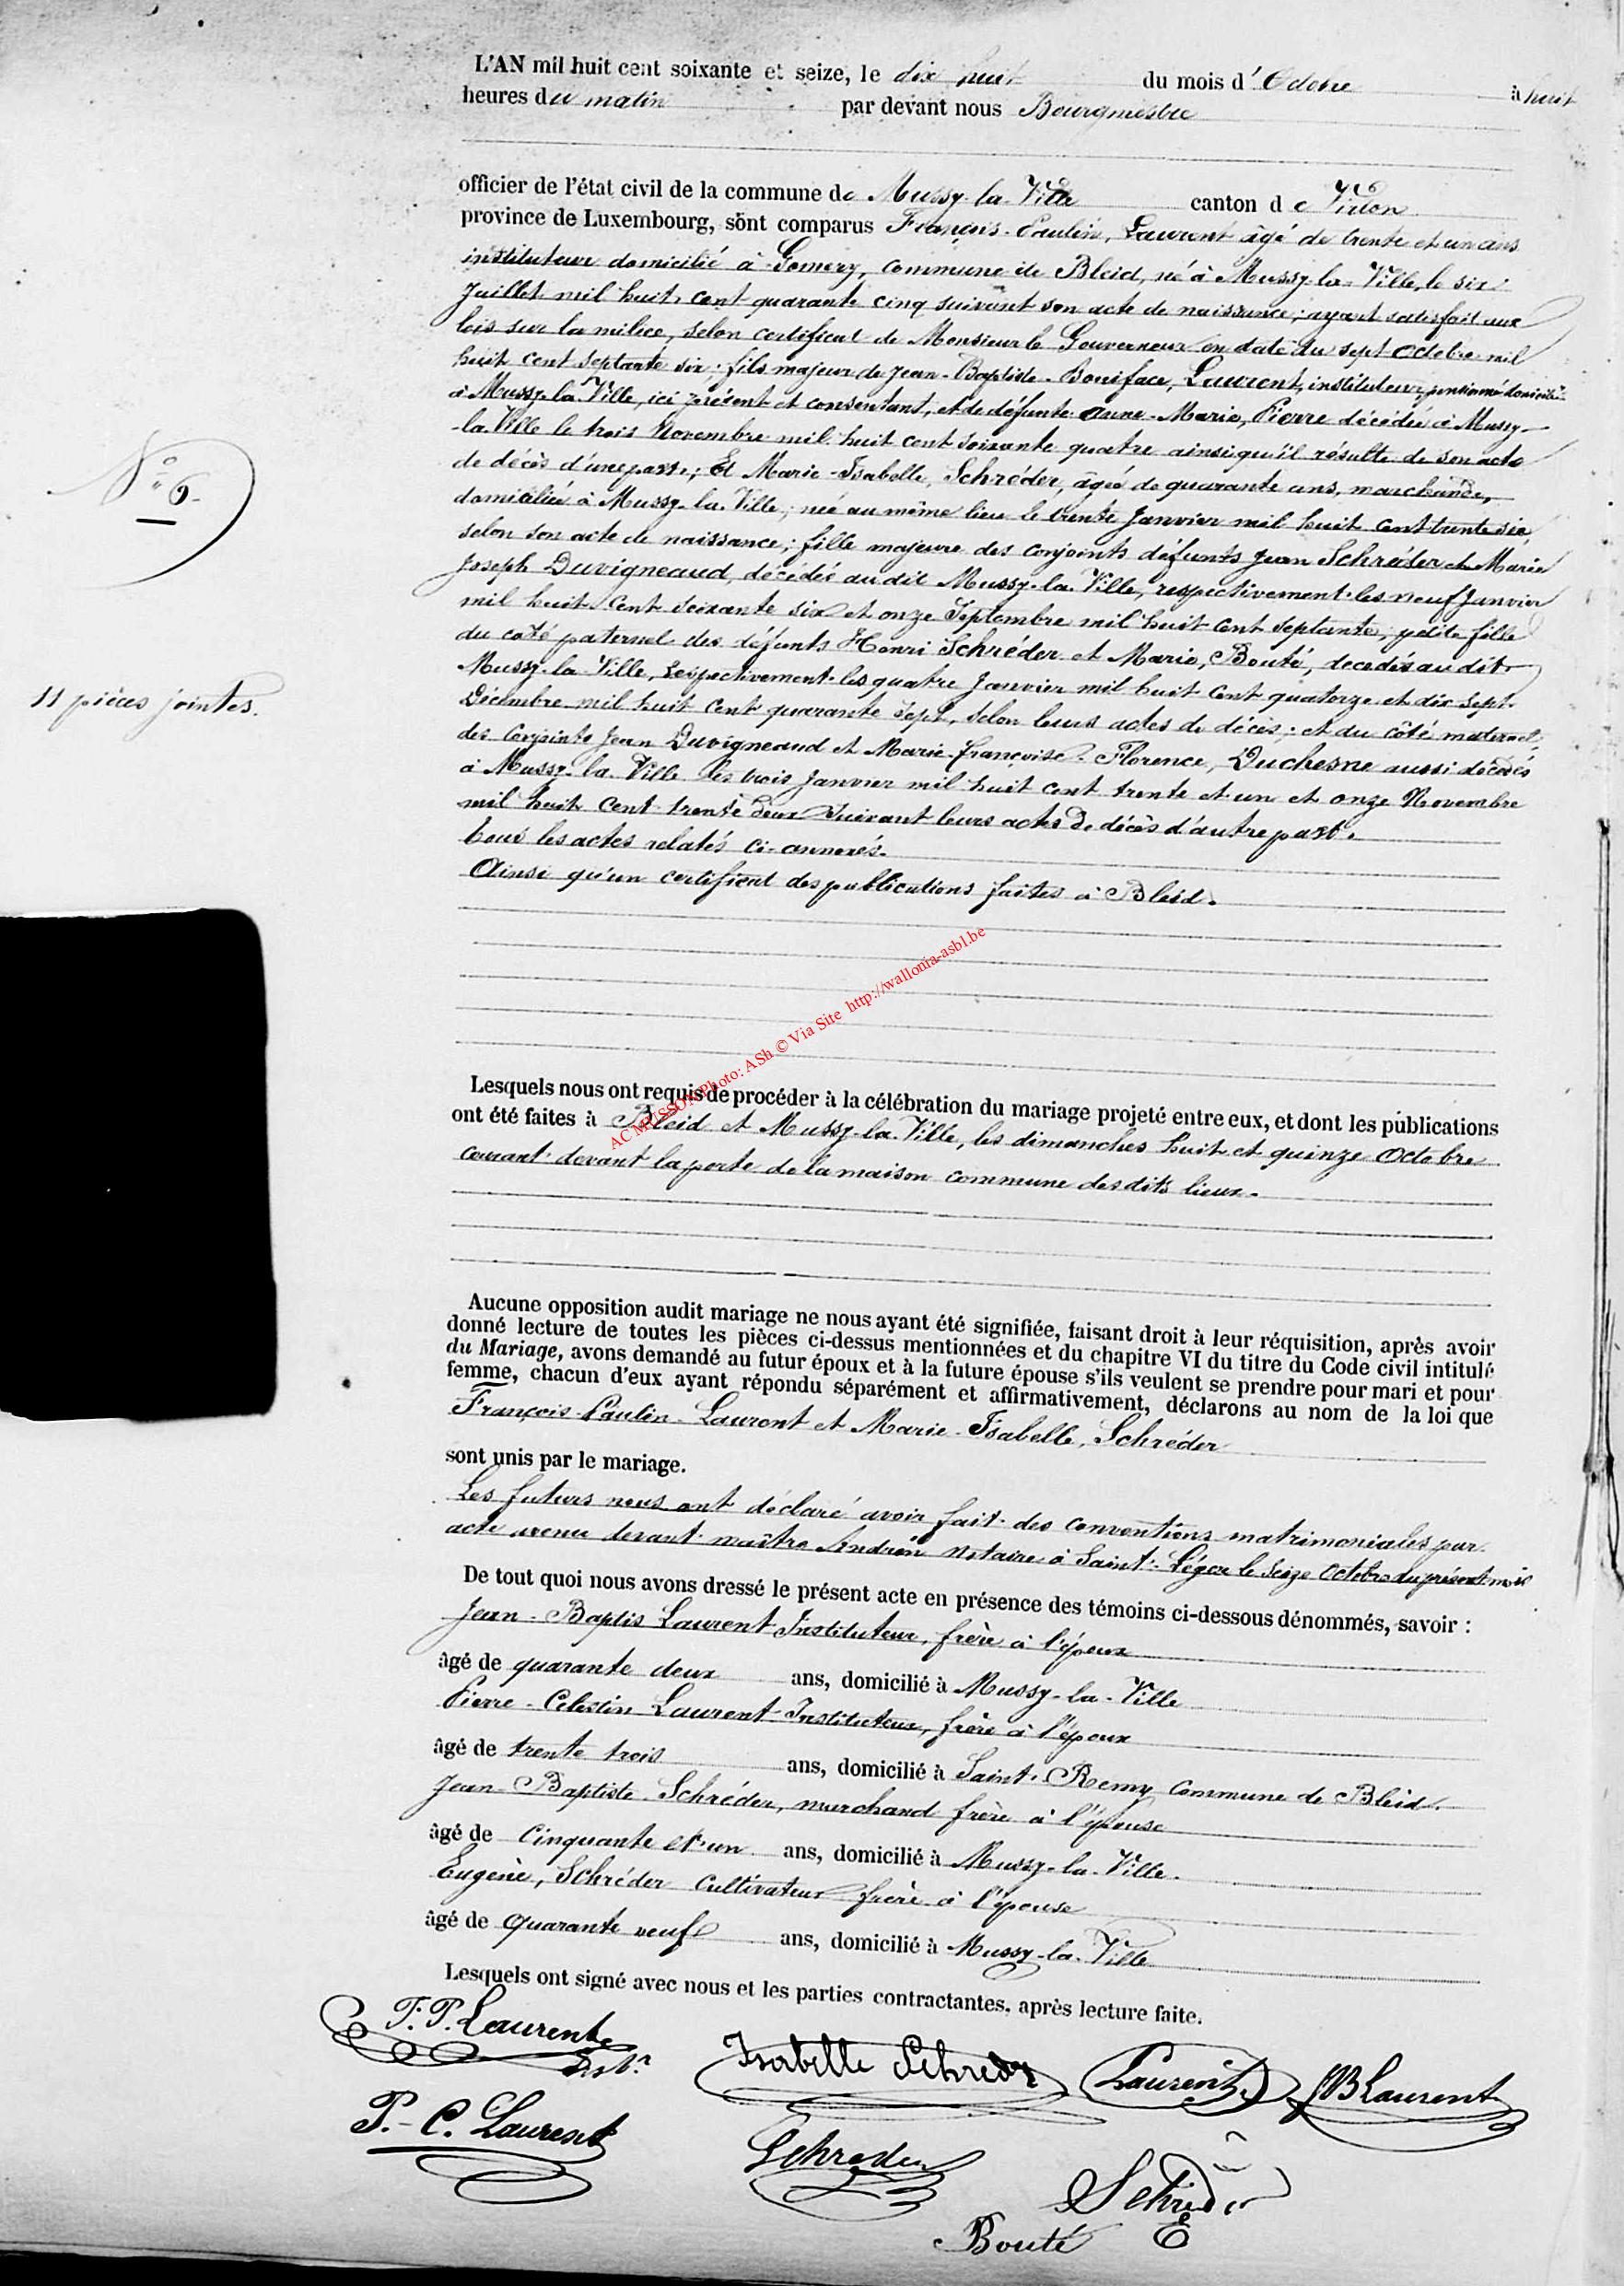 L'AN mil huit cent soixante et seize, le dix huit du mois d'Octobre à huit
heures du matin par devant nous Bourgmestre
officier de l'état civil de la commune de Mussy-la-Ville canton de Virton
province de Luxembourg, sont comparus François-Paulin, Laurent âgé de trente et un ans
instituteur domicilié à Gomery, commune de Bleid, né à Mussy-la-Ville, le six
Juillet mil huit cent quarante cinq suivant son acte de naissance; ayant satisfait aux
lois sur la milice, selon certificat de Monsieur le Gouverneur en date du sept Octobre mil
huit cent septante six; fils majeur de Jean-Baptiste-Boniface, Laurent, instituteur pensionné domicilié
à Mussy-la-Ville, ici présent et consentant, et de défunte Anne-Marie, Pierre décédée à Mussy-
la-Ville le trois Novembre mil huit cent soixante quatre ainsi qu'il résulte de son acte
de décès d'une part; Et Marie-Isabelle, Schréder, âgée de quarante ans, marchande,
domiciliée à Mussy-la-Ville, née au même lieu le trente Janvier mil huit cent trente six,
selon son acte de naissance; fille majeure des conjoints défunts Jean Schréder et Marie
Joseph Duvigneaud, décédés au dit Mussy-la-Ville, respectivement les neuf Janvier
mil huit cent soixante six et onze Septembre mil huit cent septante; petite fille
du côté paternel des défunts Henri Schréder et Marie, Bouté, décédés au dit
Mussy-la-Ville, respectivement les quatre Janvier mil huit cent quatorze et dix sept
Décembre mil huit cent quarante sept, selon leurs actes de décès; et du côté maternel
des Conjoints Jean Duvigneaud et Marie-Françoise-Florence, Duchesne aussi décédés
à Mussy-la-Ville les trois Janvier mil huit cent trente et un et onze Novembre
mil huit cent trente deux suivant leurs actes de décès d'autre part.
tous les actes relatés ci-annexés.
Ainsi qu'un certificat des publications faites à Bleid.
N° 6.
11 pièces jointes.
AC MUSSON Photo: ASh © Via Site http://wallonia-asbl.be
Lesquels nous ont requis de procéder à la célébration du mariage projeté entre eux, et dont les publications
ont été faites à Bleid et Mussy-la-Ville, les dimanches huit et quinze Octobre
courant devant la porte de la maison commune desdits lieux.
Aucune opposition audit mariage ne nous ayant été signifiée, faisant droit à leur réquisition, après avoir
donné lecture de toutes les pièces ci-dessus mentionnées et du chapitre VI du titre du Code civil intitulé
du Mariage, avons demandé au futur époux et à la future épouse s'ils veulent se prendre pour mari et pour
femme, chacun d'eux ayant répondu séparément et affirmativement, déclarons au nom de la loi que
François-Paulin-Laurent et Marie-Isabelle, Schréder
sont unis par le mariage.
Les futurs nous ont déclaré avoir fait des conventions matrimoniales par
acte avenu devant maître Andrin notaire à Saint-Léger le seize Octobre du présent mois
De tout quoi nous avons dressé le présent acte en présence des témoins ci-dessous dénommés, savoir :
Jean-Baptis Laurent Instituteur, frère à l'époux
âgé de quarante deux ans, domicilié à Mussy-la-Ville
Pierre-Celestin Laurent Instituteur, frère à l'époux
âgé de trente trois ans, domicilié à Saint-Remy commune de Bleid.
Jean-Baptiste Schréder, marchand frère à l'épouse
âgé de Cinquante et un ans, domicilié à Mussy-la-Ville.
Eugène, Schréder Cultivateur frère à l'épouse
âgé de quarante neuf ans, domicilié à Mussy-la-Ville
Lesquels ont signé avec nous et les parties contractantes, après lecture faite.
F. P. Laurent
Inst.r
Isabelle Schreder
Laurent
JB Laurent
P.-C. Laurent
Schreder
Schréder
E
Bouté